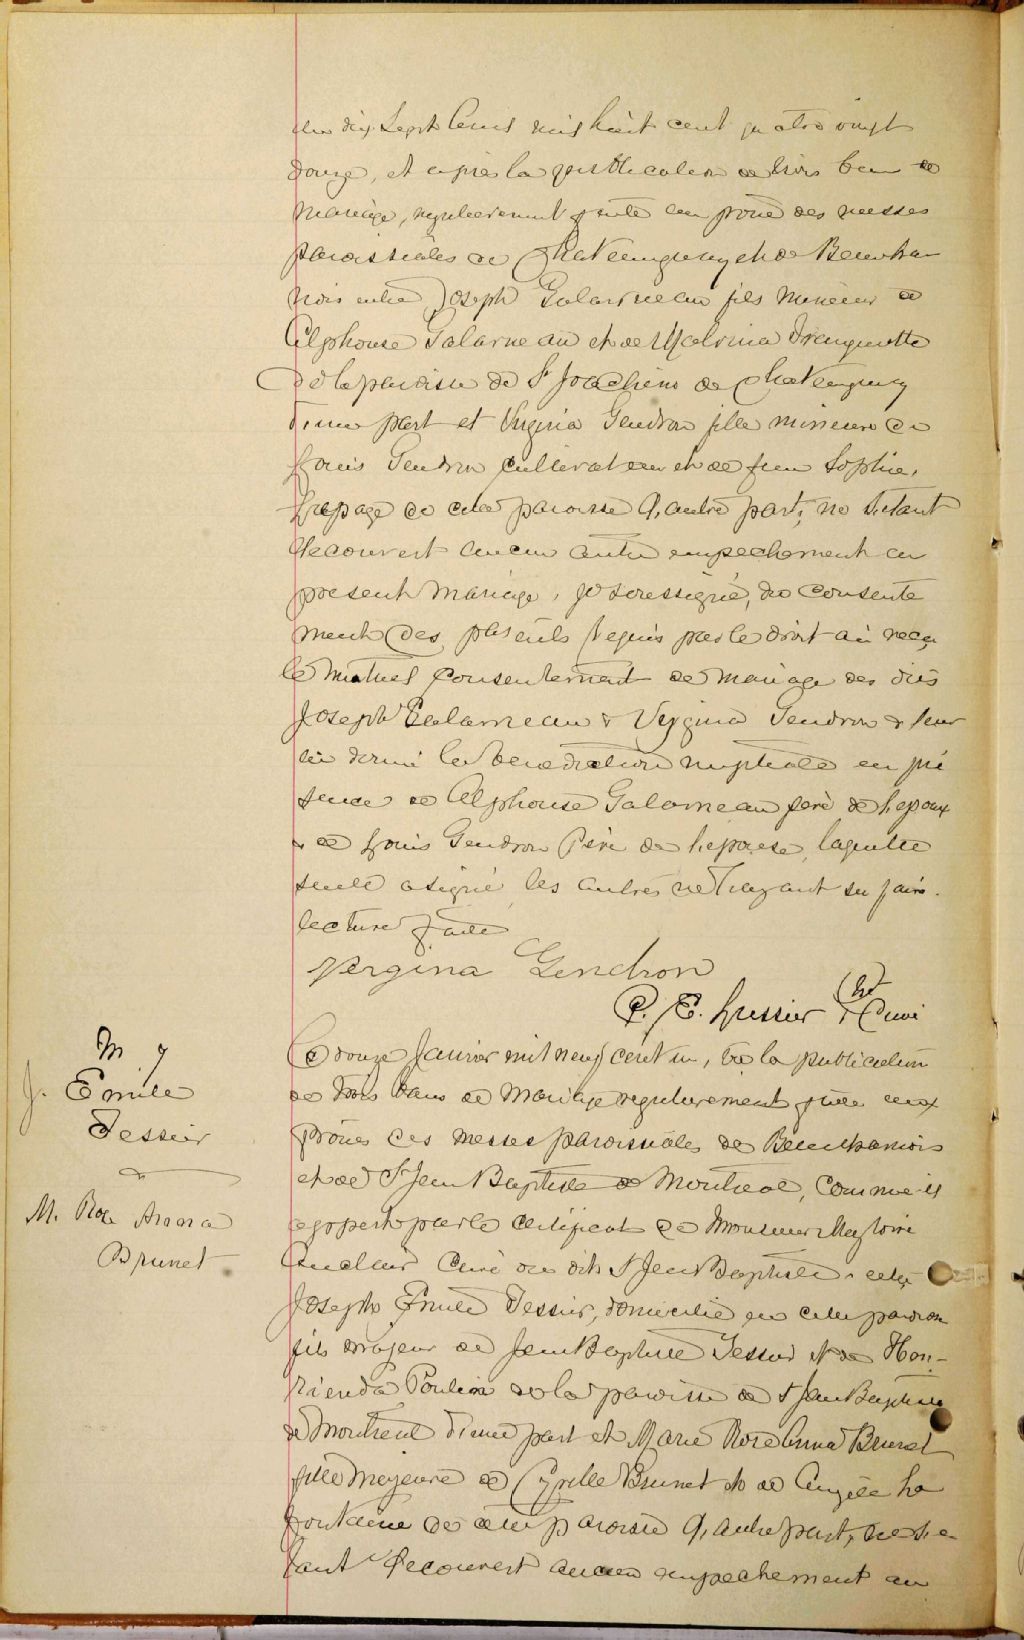 du dix Sept Couis mis huit cent quatre vingt
douze, et après la publication de trois bans de
mariage, regulierement faite au prone des messes
paroissiales de Chateauguay et de Beauhar
nois entre Joseph Galarneau fils mineur de
Alphonse Galarneau et de Malvina Tranquette
de la paroisse de St Joachim de Chateauguay
d'une part et Virginia Gendron fille mineure de
Louis Gendron cultivateur et de feue Sophie
Lepage de cette paroisse d'autre part, ne s'etant
decouvert aucun autre empechement au
present mariage, je soussigné, du consente
ment des requis par le droit ai reçu
le mutuel consentement de mariage des dits
Joseph Galarneau & Virgina Gendron & leur
ai donné la benediction nuptiale en pré
sence de Alphonse Galarneau père de l'epoux
& de Louis Gendron Père de l'epouse, laquelle
seule a signé les autres ne l'ayant su faire.
lecture faite
Vergina Gendron
C. E. Lussier Ptre Curé
M 7
J. Emile
Tessier
M. Rose Anna
Brunet
Ce douze Janvier mil neuf cent un, vu la publication
de trois bans de mariage regulierement faite aux
Prônes des messes paroissiales de Beauharnois
et de St Jean Baptiste de Montreal, comme il
appert par le certificat de Monsieur Magloire
Auclair Curé du dit St Jean Baptiste, entre
Joseph Emile Tessier, domicilié en cette paroisse
fils majeur de Jean Baptiste Tessier et de Hon-
rienda Poulin de la paroisse de St Jean Baptiste
de Montreal d'une part et Marie Rose Anna Brunet
fille majeure de Cyrille Brunet et de Angèle La
fontaine de cette paroisse d'autre part, ne s'e
tant decouvert aucun empechement au